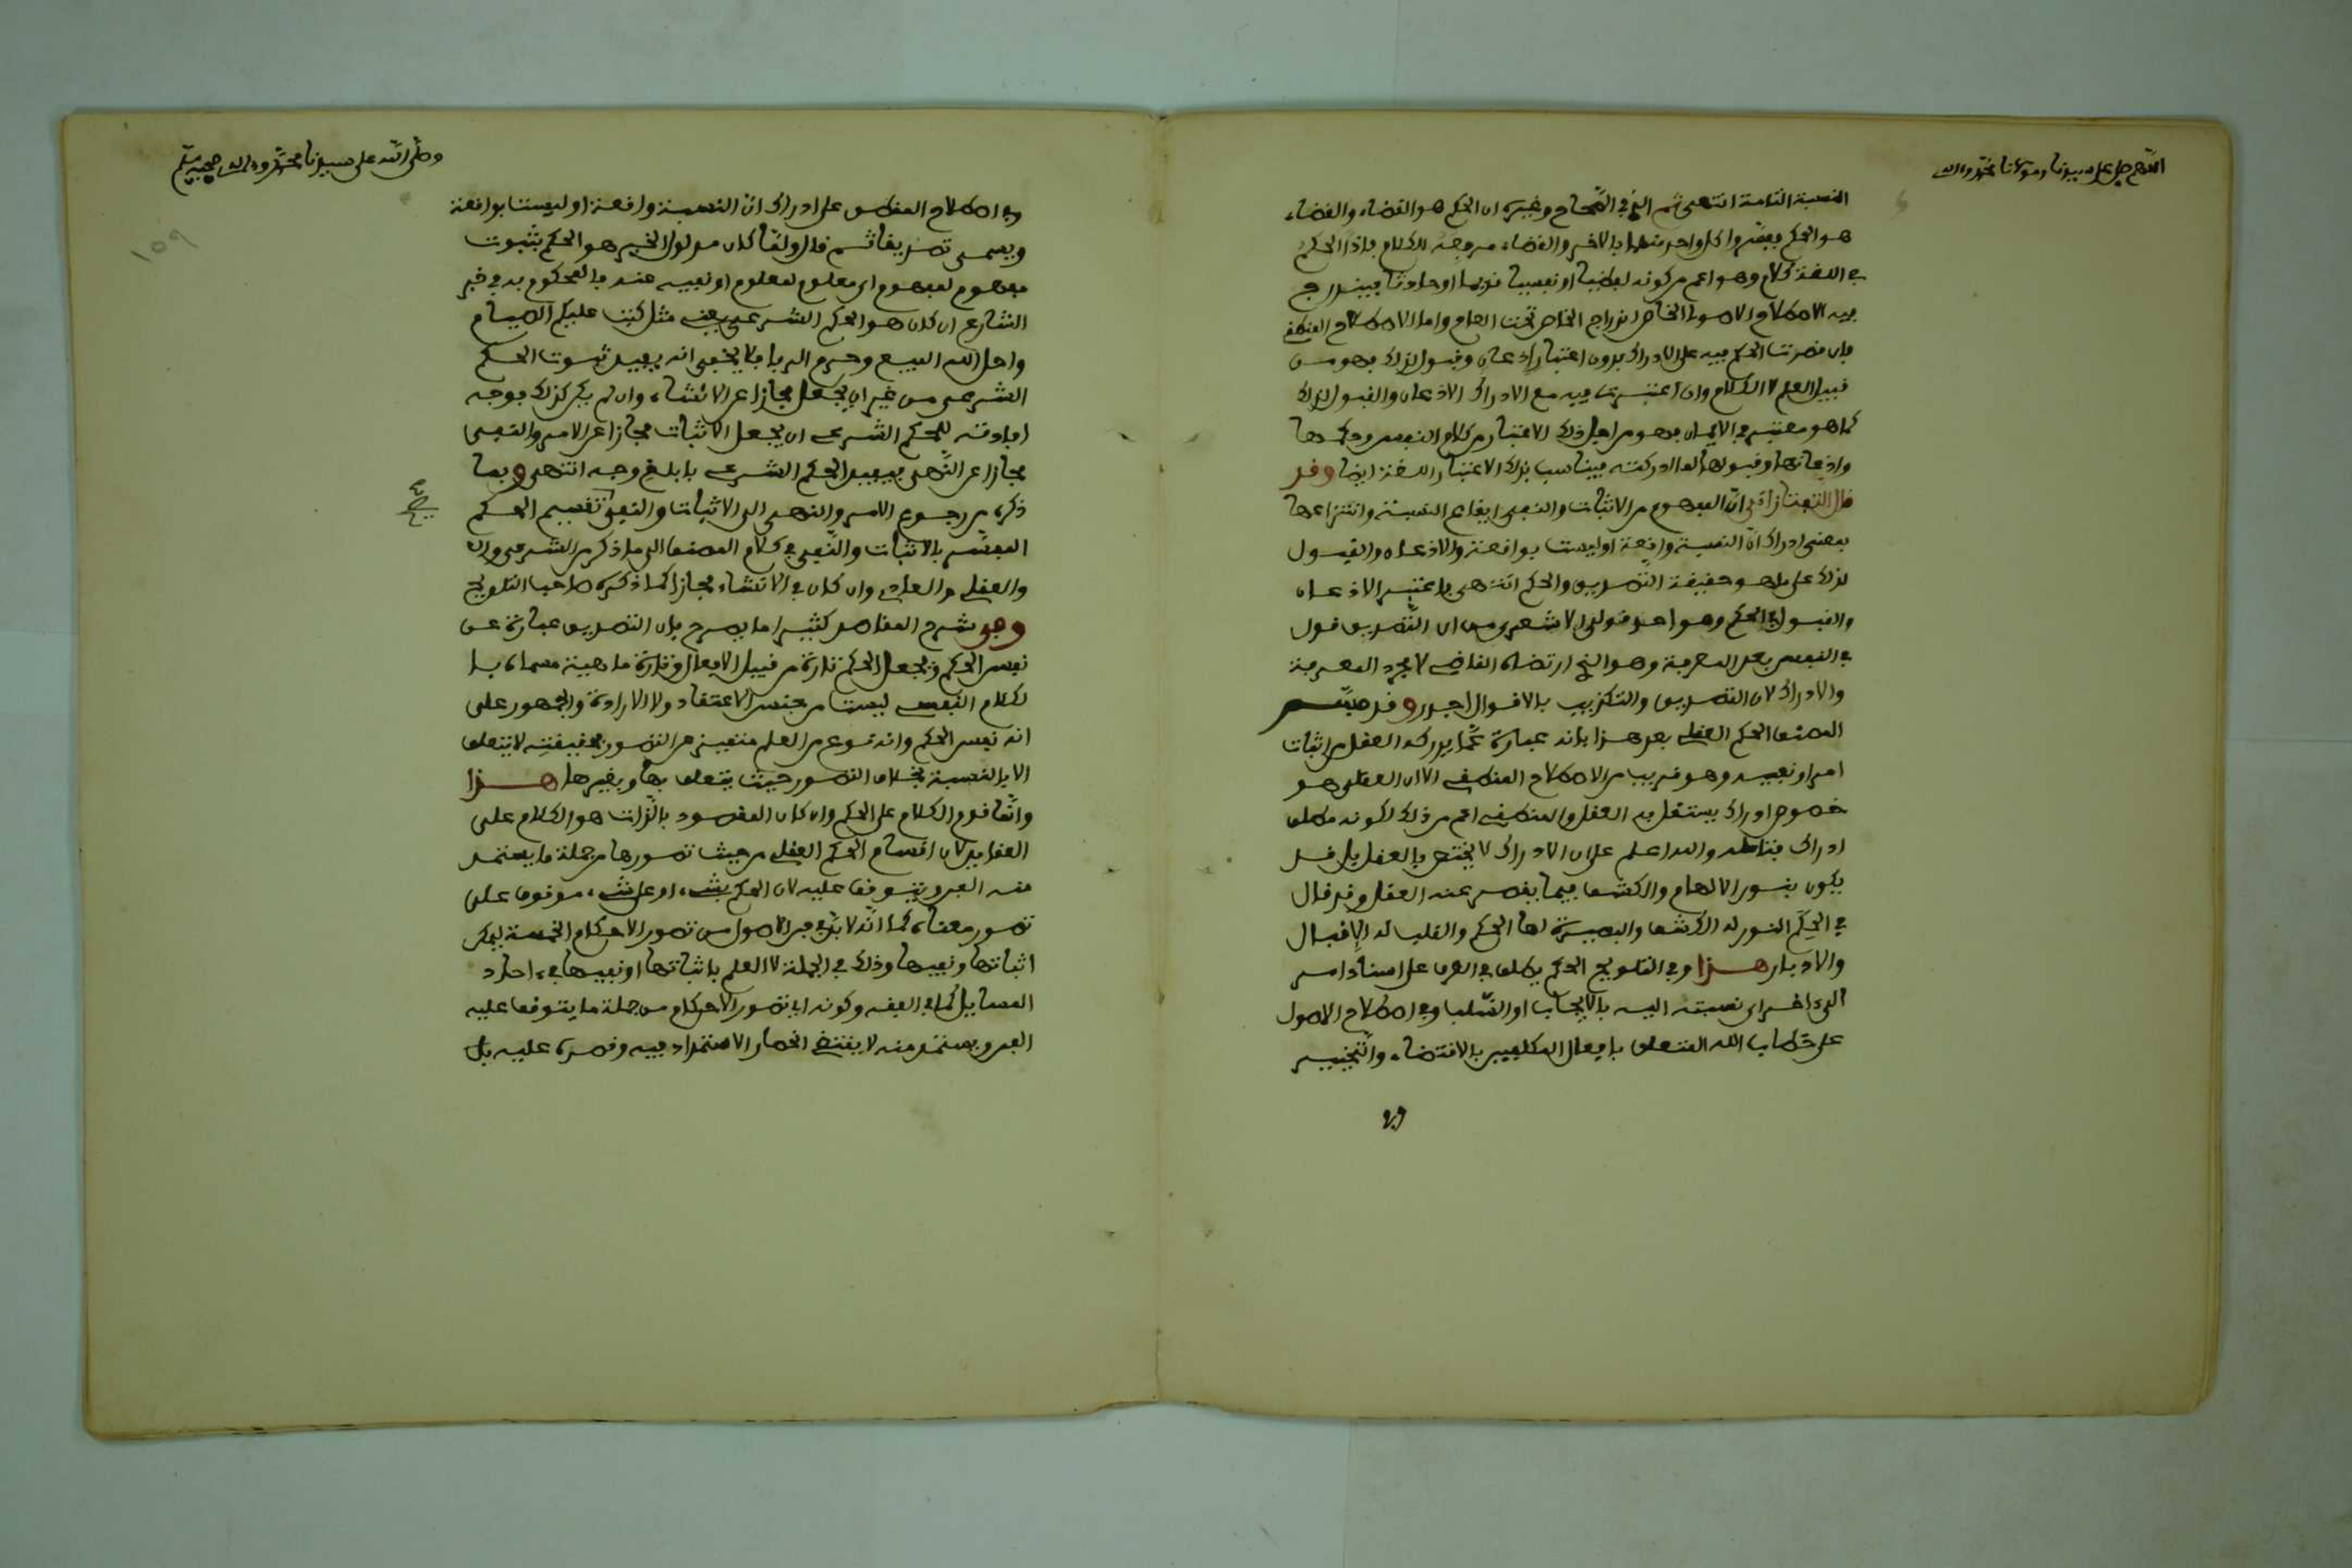 اللهم صل على سيدنا ومولانا محمد وآله
النسبة التامة انتهى ثم الذي في الصحاح وغيره ان الحكم هو القضاء والقضاء
هو الحكم بفسروا كل واحد منهما بالاخر والقضاء مرجعه للكلام فاذا الحكم
في اللغة كلام وهو اعم من كونه لفظيا او نفسيا قديما او حادثا فيندرج
فيه الاصطلاح الاصولي الخاص اندراج الخاص تحت العام واما الاصطلاح المنطقي
فان قصرت الحكم فيه على الادراك بدون اعتبار اذعان وقبول لذلك فهو من
قبيل العلم لا الكلام وان اعتبرت فيه مع الادراك الاذعان والقبول لذلك
كما هو معتبر في الايمان فهو من اجل ذلك الاعتبار من كلام النفس وحكمها
واذعانها وقبولها لما ادركته فيناسب بذلك الاعتبار اللغة ايضا وقد
قال التفتازاني ان المفهوم من الاثبات والنفي ايقاع النسبة وانتزاعها
بمعنى ادراك ان النسبة واقعة او ليست بواقعة والاذعان والقبول
لذلك على ما هو حقيقة التصديق والحكم انتهى فاعتبر الاذعان
والقبول في الحكم وهو احد قولي الاشعري من ان التصديق قول
في النفس بعد المعرفة وهو الذي ارتضاه القاضي لا مجرد المعرفة
والادراك لان التصديق والتكذيب بالاقوال اجدر وقد فسر
المصنف الحكم العقلي بعد هذا بانه عبارة عما يدركه العقل من اثبات
امر او نفيه وهو قريب من الاصطلاح المنطقي الا ان العقلي هو
خصوص ادراك يستقل به العقل والمنطقي اعم من ذلك لكونه مطلق
ادراك والله اعلم على ان الادراك لا يختص بالعقل بل قد
يكون بنور الالهام والكشف فيما يقصر عنه العقل وقد قال
في الحكم النور له الكشف والبصيرة لها الحكم والقلب له الاقبال
والادبار هذا وفي التلويح الحكم يطلق في العرف على اسناد امر
الى اخر اي نسبته اليه بالايجاب او السلب وفي اصطلاح الاصول
على خطاب الله المتعلق بافعال المكلفين بالاقتضاء والتخيير
وفي
وصلى الله على سيدنا محمد وآله وصحبه وسلم
وفي اصطلاح المنطق على ادراك ان النسبة واقعة او ليست بواقعة
ويسمى تصديقا ثم قال ولما كان مدلول الخبر هو الحكم بثبوت
مفهوم لمفهوم اي معلوم لمعلوم او نفيه عنه فالمحكوم به في خبر
الشارع ان كان هو الحكم الشرعي بعينه مثل كتب عليكم الصيام
واحل الله البيع وحرم الربا فلا يخفى انه يفيد ثبوت الحكم
الشرعي من غير ان يجعل مجازا عن الانشاء وان لم يكن كذلك فوجه
افادته للحكم الشرعي ان يجعل الاثبات مجازا عن الامر والنفي
مجازا عن النهي فيفيد الحكم الشرعي بابلغ وجه انتهى وبما
ذكره من رجوع الامر والنهي الى الاثبات والنفي تقسيم الحكم
المفسر بالاثبات والنفي في كلام المصنف الى ما ذكر من الشرعي
والعقلي والعادي وان كان في الانشاء مجازا كما ذكره صاحب التلويح
وفي شرح المقاصد كثيرا ما يصرح بان التصديق عبارة عن
نفس الحكم ويجعل الحكم تارة من قبيل الافعال وتارة ماهية مسماة بـ
لكلام النفسي ليست من جنس الاعتقاد ولا الارادة والجمهور على
انه نفس الحكم وانه نوع من العلم متميز عن التصور بحقيقته لا يتعلق
الا بالنسبة بخلاف التصور حيث يتعلق بها وبغيرها هذا
وانما قدم الكلام على الحكم وان كان المقصود بالذات هو الكلام على
العقايد لان اقسام الحكم العقلي من حيث تصورها من جملة ما يستمد
منه الفن ويتوقف عليه لان الحكم بشيء او على شيء موقوف على
تصور معناه كما انه لا بد في فن الاصول من تصور الاحكام الخمسة ليمكن
اثباتها ونفيها وذلك في الجملة لا العلم باثباتها او نفيها في احاد
المسايل كما في الفقه وكونه اي تصور الاحكام من جملة ما يتوقف عليه
الفن ويستمد منه لا يقتضي انحصار الاستمداد فيه وقصره عليه بل
١٥٩